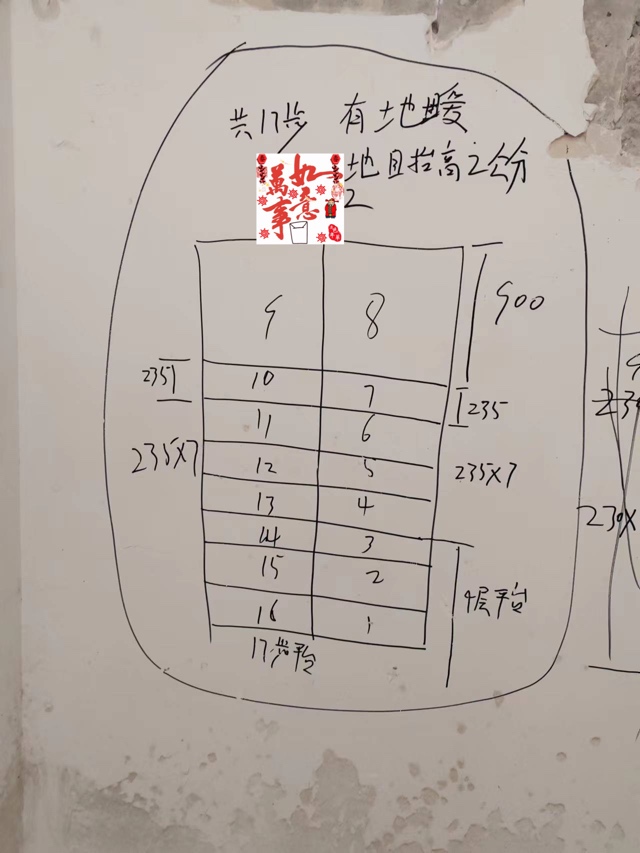 共17步 有地暖
地且抬高2公分
2
萬事如意
9 8 900
2351 10 7 235
11 6
235X7 12 5 235X7
13 4
14 3
15 2 4层平台
16 1
17步平台
230X